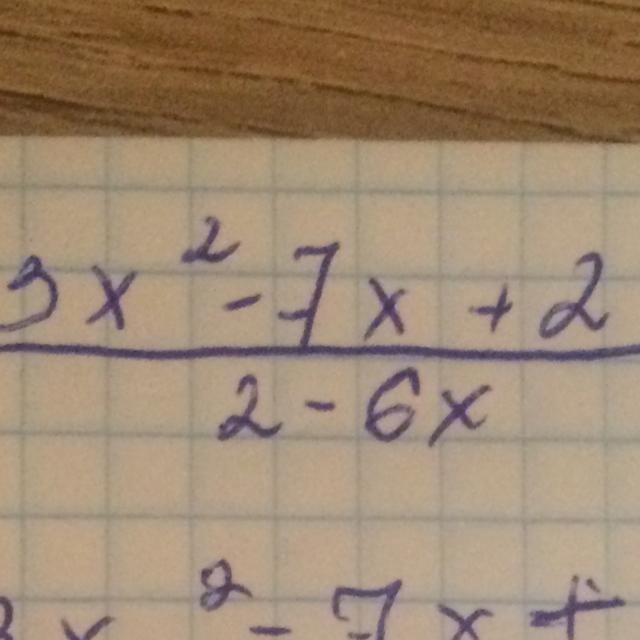 3x² - 7x + 2
2 - 6x
x² - 7x +